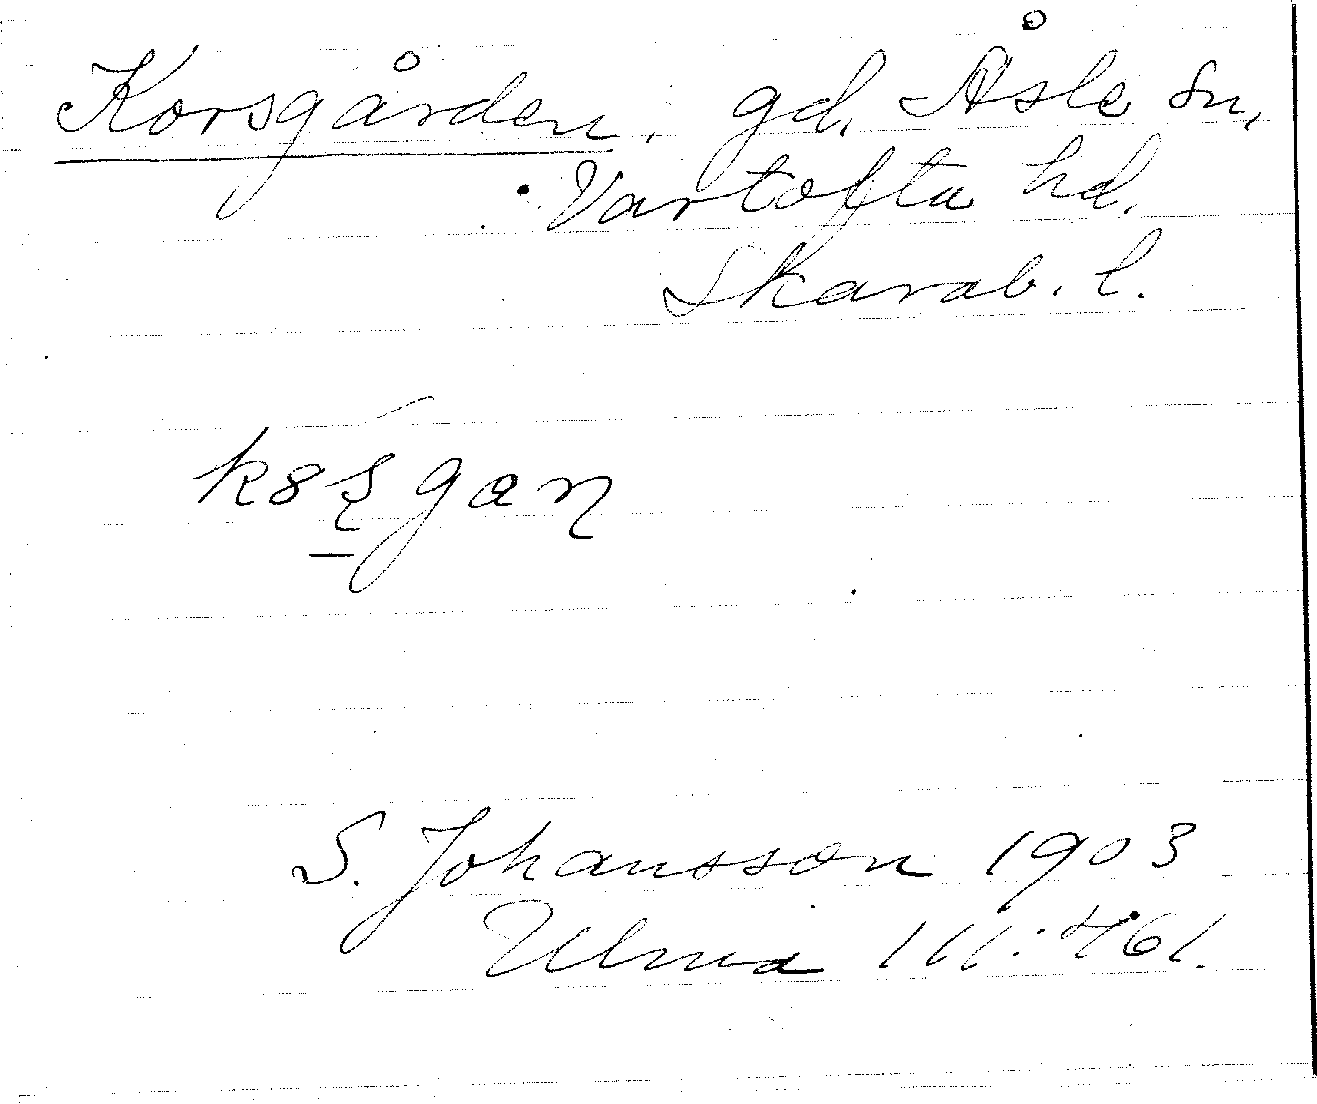 Korsgården, gd, Åsle sn,
Vartofta hd.
Skarab. l.
S. Johansson 1903
Ulma 111:461.